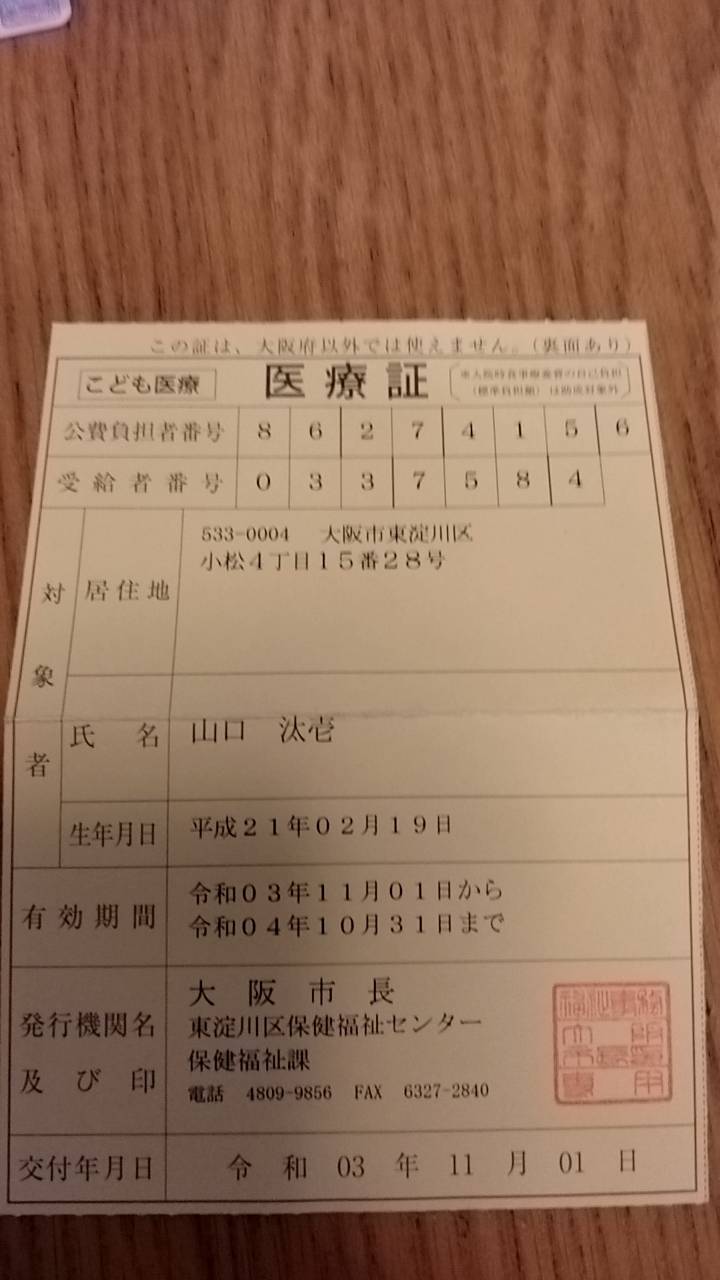 この証は、大阪府以外では使えません。(裏面あり)
こども医療 医療証 (標準負担額)は助成対象外
公費負担者番号 8 6 2 7 4 1 5 6
受給者番号 0 3 3 7 5 8 4
対象者
居住地 533-0004 大阪市東淀川区
小松4丁目15番28号
氏名 山口 汰壱
生年月日 平成21年02月19日
有効期間 令和03年11月01日から
令和04年10月31日まで
発行機関名及び印 大阪市長
東淀川区保健福祉センター
保健福祉課
電話 4809-9856 FAX 6327-2840
交付年月日 令和03年11月01日